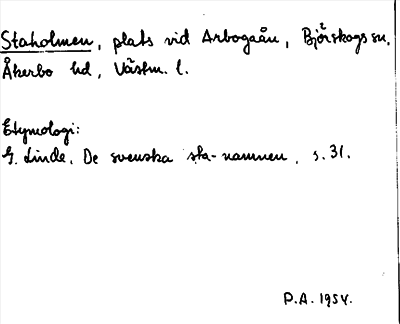 Staholmen, plats vid Arbogaån, Björskogs sn,
Åkerbo hd, Västm. l.
Etymologi:
G. Linde, De svenska sta-namnen, s. 31.
P.A. 1954.